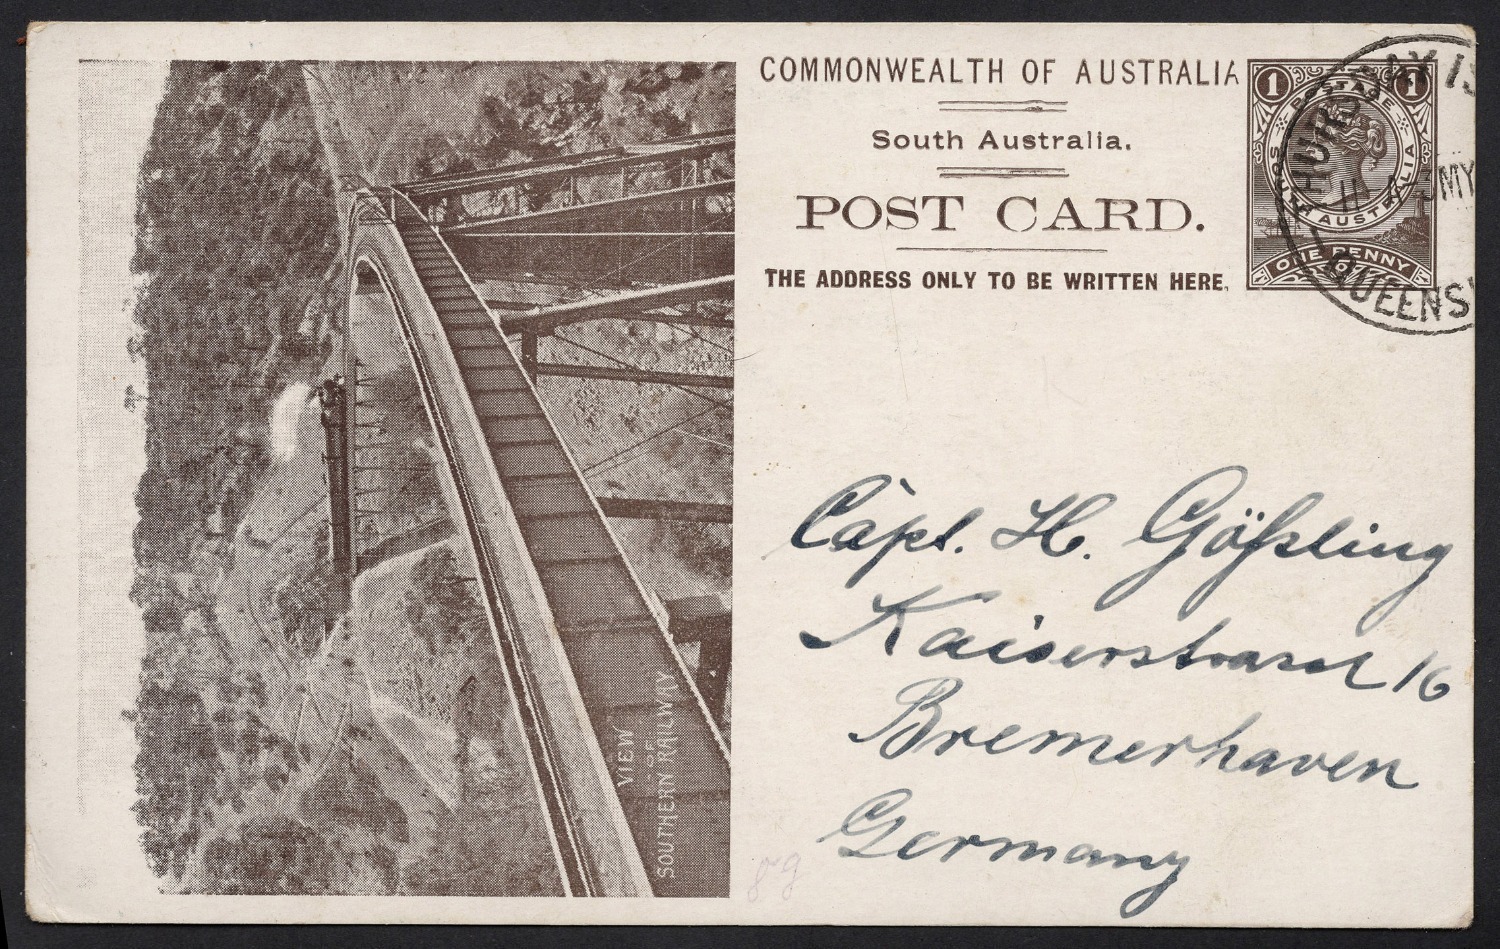 COMMONWEALTH OF AUSTRALIA
South Australia.
POST CARD.
THE ADDRESS ONLY TO BE WRITTEN HERE.
1 1
POSTAGE
SOUTH AUSTRALIA
ONE PENNY
THURSDAY IS
MY
QUEENS
Capt. H. Gößling
Kaiserstrasse 16
Bremerhaven
Germany
VIEW
-OF-
SOUTHERN RAILWAY
89